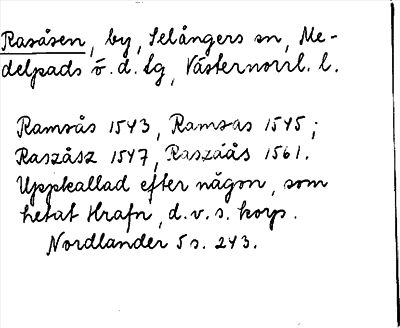 Rasåsen, by, Selångers sn, Me-
delpads ö. d. lg, Västernorrl. l.
Ramsås 1543, Ramsas 1545;
Raszåsz 1547, Raszåås 1561.
Uppkallad efter någon, som
hetat Hrafn, d.v.s. korp.
Nordlander 5 s. 243.